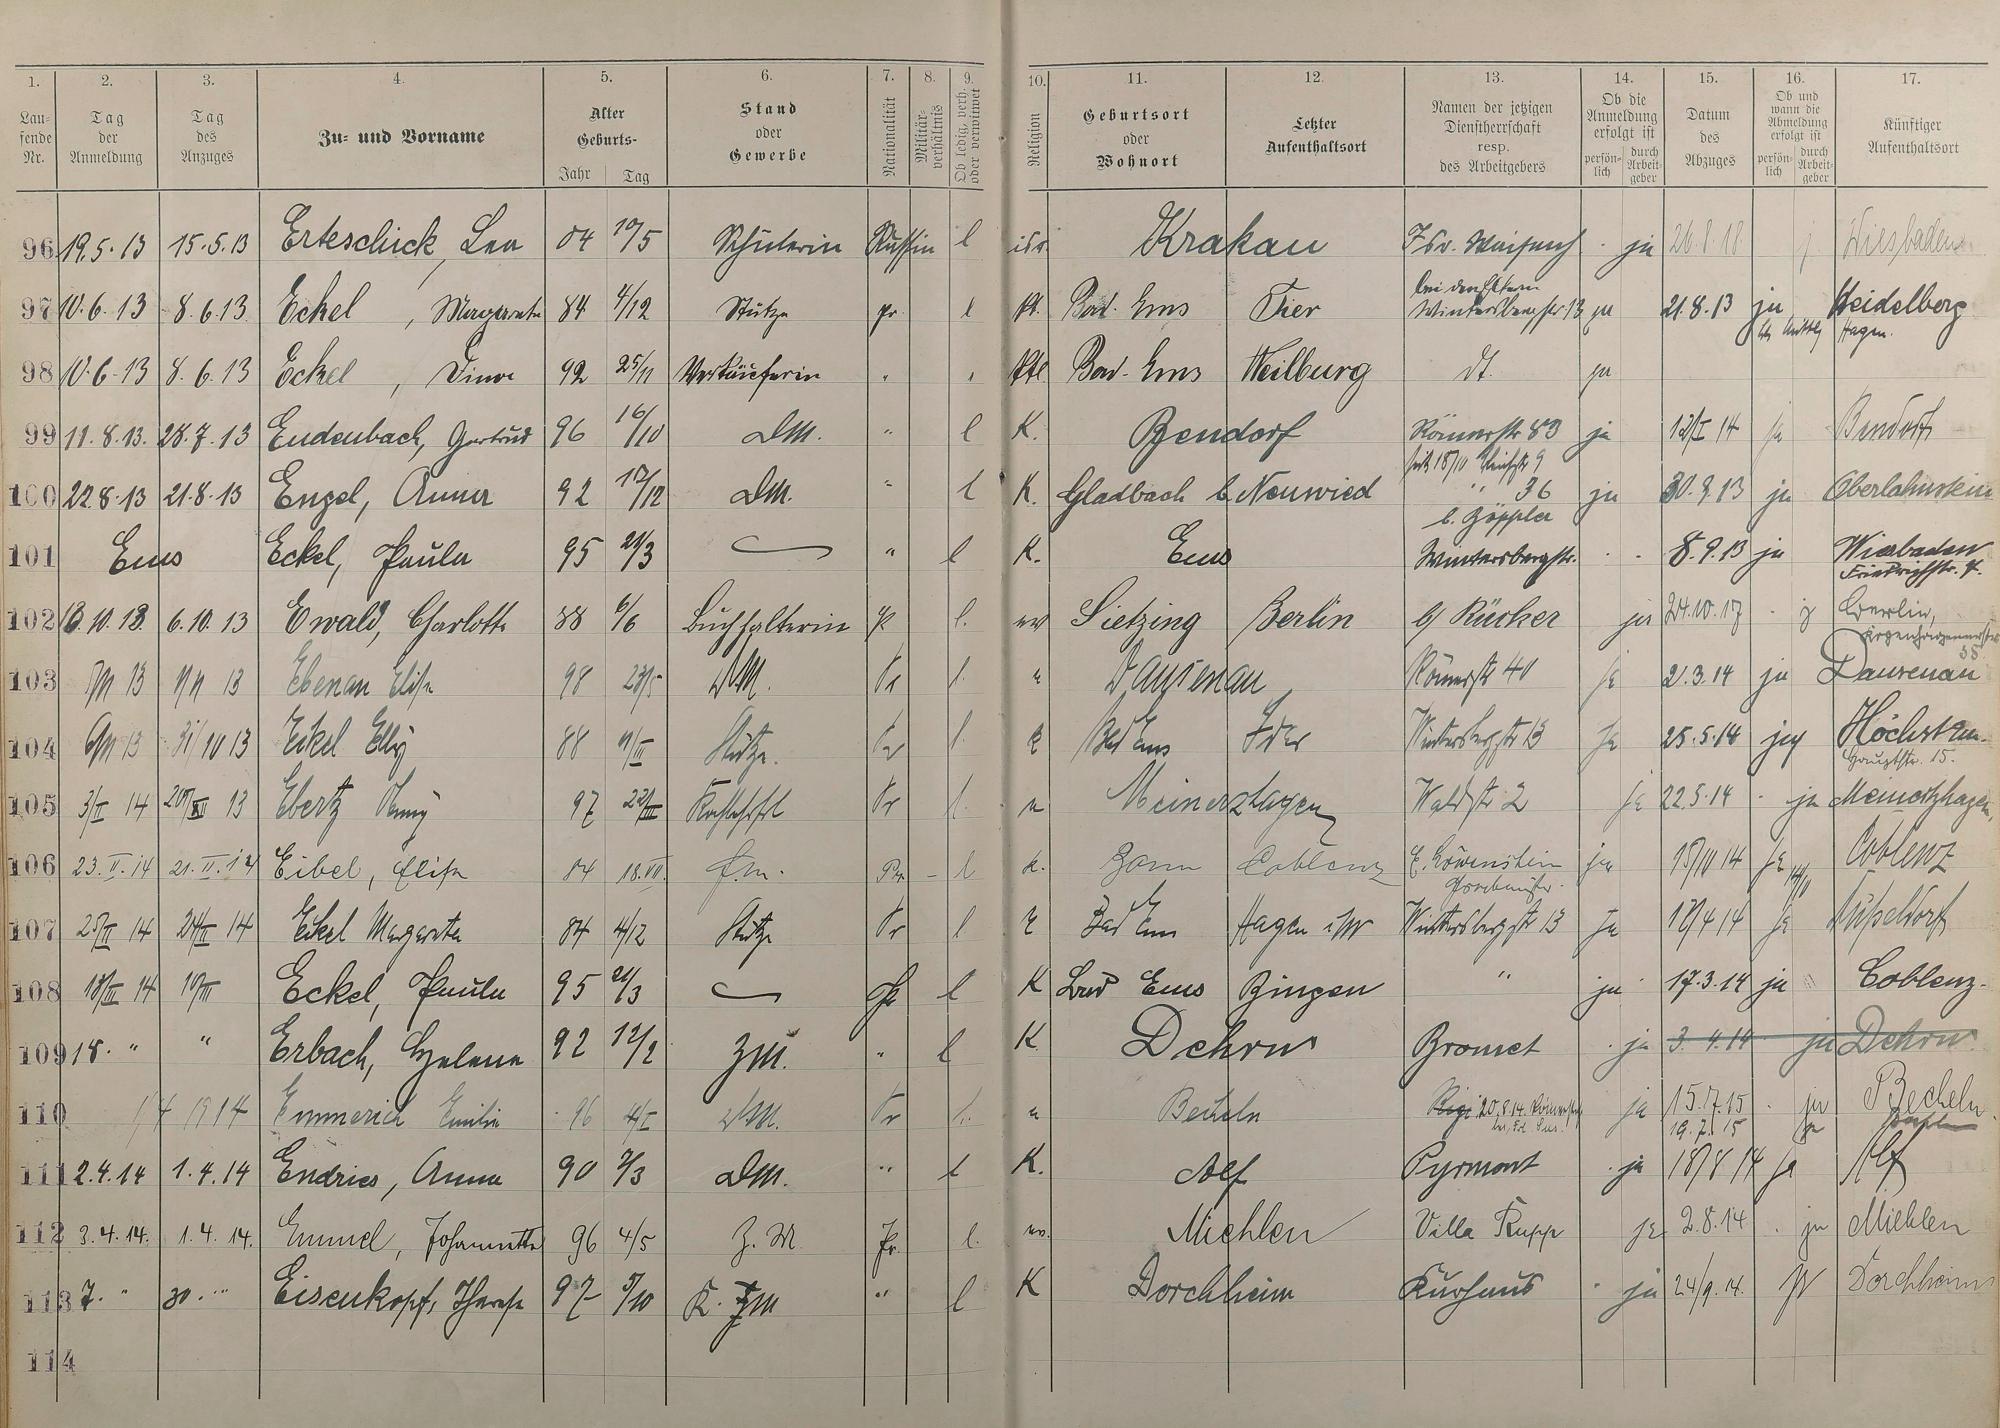 1. 2. 3. 4. 5. 6. 7. 8. 9. 10. 11. 12. 13. 14. 15. 16. 17.
Laufende Nr. Tag der Anmeldung Tag des Anzuges Zu- und Vorname Alter Geburts- Jahr Tag Stand oder Gewerbe Nationalität Militärverhältnis Ob ledig, verh. oder verwitwet Religion Geburtsort oder Wohnort Letzter Aufenthaltsort Namen der jetzigen Dienstherrschaft resp. des Arbeitgebers Ob die Anmeldung erfolgt ist persönlich durch Arbeitgeber Datum des Abzuges Ob und wann die Abmeldung erfolgt ist persönlich durch Arbeitgeber Künftiger Aufenthaltsort
96 19.5.13 15.5.13 Erteschick, Lea 04 10/5 Schülerin Russin l isr. Krakau Isr. ja 26.8.18 j. Wiesbaden
97 10.6.13 8.6.13 Eckel, Margarete 84 4/12 Stütze pr. l Bad. Ems Trier bei den Eltern Wintersbergstr. 13 ja 21.8.13 ja Heidelberg
Hagen.
98 10.6.13 8.6.13 Eckel, 92 25/11 Verkäuferin " " Bad-Ems Weilburg dt. ja
99 11.8.13. 28.7.13 Eudenbach, Gertrud 96 16/10 DM. " l K. Bendorf Römerstr 83 ja 12/I 14 ja Bendorf
100 22.8.13 21.8.13 Engel, Anna 92 12/12 DM. " l K. Gladbach b. Neuwied " 36 ja 30.9.13 ja Oberlahnstein
101 Ems Eckel, Paula 95 21/3 " l K. Ems Wintersbergstr. 8.9.13 ja Wiesbaden
Friedrichstr. 7.
102 13.10.13. 6.10.13 Ewald, Charlotte 88 6/6 Buchhalterin p l. ev Sietzing Berlin b/ Rücker ja 24.10.17 j Berlin,
103 13 13 Ebenau Elise 98 23/5 DM. Pr l. " Dausenau Römerstr 40 ja 21.3.14 ja Dausenau
104 13 31/10 13 Eckel Elly 88 Stütze. Pr l. Bad Ems Wintersbergstr 13 ja 25.5.14 ja Höchst
Hauptstr. 15.
105 3/II 14 20/XII 13 Ebertz 97 22/III Pr l. Meinerzhagen Waldstr 2 ja 22.5.14 ja Meinerzhagen
106 23.II.14 21.II.14 Eibel, Elise 84 18.VII. Pr. - l k. Coblenz E. Löwenstein ja 15/IV 14 ja Coblenz
107 25/II 14 24/II 14 Eckel Margareta 84 4/12 Stütze Pr l Bad Ems Hagen i/W Wintersbergstr 13 ja 17/4 14 ja Düsseldorf
108 13/III 14 10/III Eckel, Paula 95 21/3 Pr l K Bad Ems Bingen " ja 17.3.14 ja Coblenz.
109 18. " " Erbach, Helene 92 12/2 ZM. " l K Dehrn Bromet ja 3.4.14 ja Dehrn
110 1/4 1914 Emmerich Emilie 96 4/I DM. Pr l. " Becheln 20.8.14. ja 15.7.15 ja Becheln
19.7.15
111 2.4.14 1.4.14 Endries, Anna 90 7/3 DM. " l K. Alf Pyrmont ja 18/8 14 ja Alf
112 3.4.14. 1.4.14. Emmel, Johannette 96 4/5 Z. M. Pr. l. ev. Miehlen Villa Rupp ja 2.8.14 ja Miehlen
113 7. " 30. " Eisenkopf, Therese 97 5/10 K. ZM " l K Dorchheim Kurhaus ja 24/9.14. Dorchheim
114